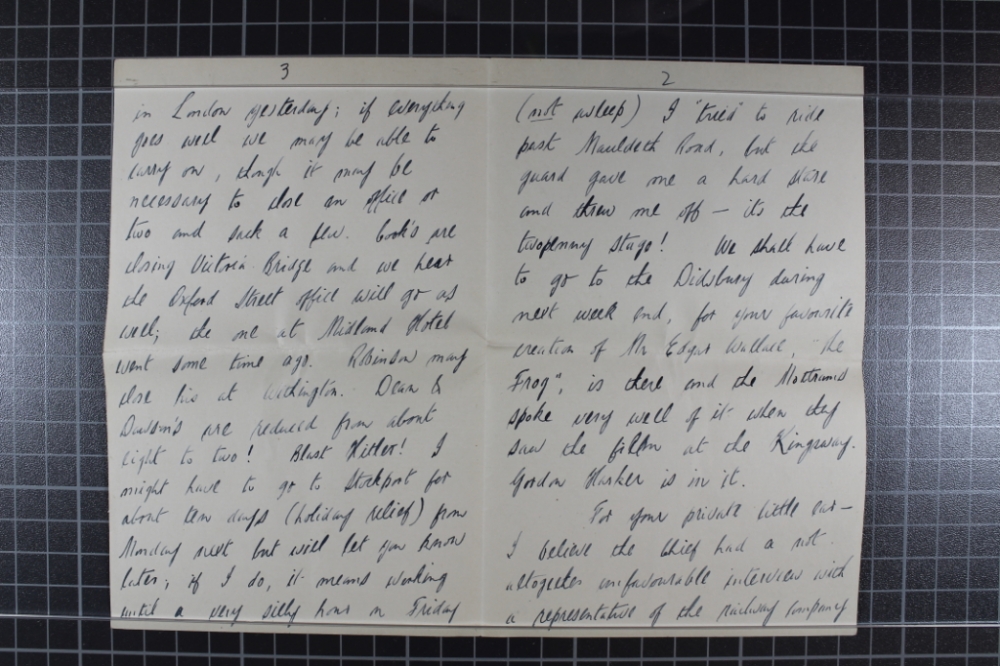 3
in London yesterday; if everything
goes well we may be able to
carry on, though it may be
necessary to close an office or
two and sack a few. Cook's are
closing Victoria Bridge and we hear
the Oxford Street office will go as
well; the one at Midland Hotel
went some time ago. Robinson may
close his at Withington. Dean &
Dawson's are reduced from about
eight to two! Blast Hitler! I
might have to go to Stockport for
about ten days (holiday relief) from
Monday next but will let you know
later; if I do, it means working
until a very silly hour on Friday
2
(not asleep) I "tried" to ride
past Mauldeth Road, but the
guard gave me a hard stare
and threw me off — its the
twopenny stage! We shall have
to go to the Didsbury during
next week end, for your favourite
creation of Mr Edgar Wallace, "the
Frog", is there and the Mottrams
spoke very well of it when they
saw the film at the Kingsway.
Gordon Harker is in it.
For your private little ear —
I believe the Chief had a not
altogether unfavourable interview with
a representative of the railway company